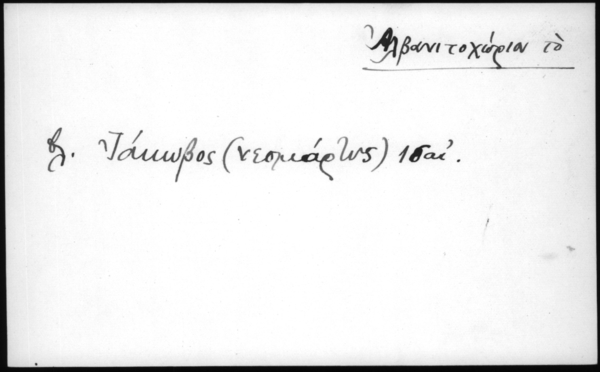 Ἀλβανιτοχώριον τὸ
βλ. Ἰάκωβος (νεομάρτυς) 16 αἰ.